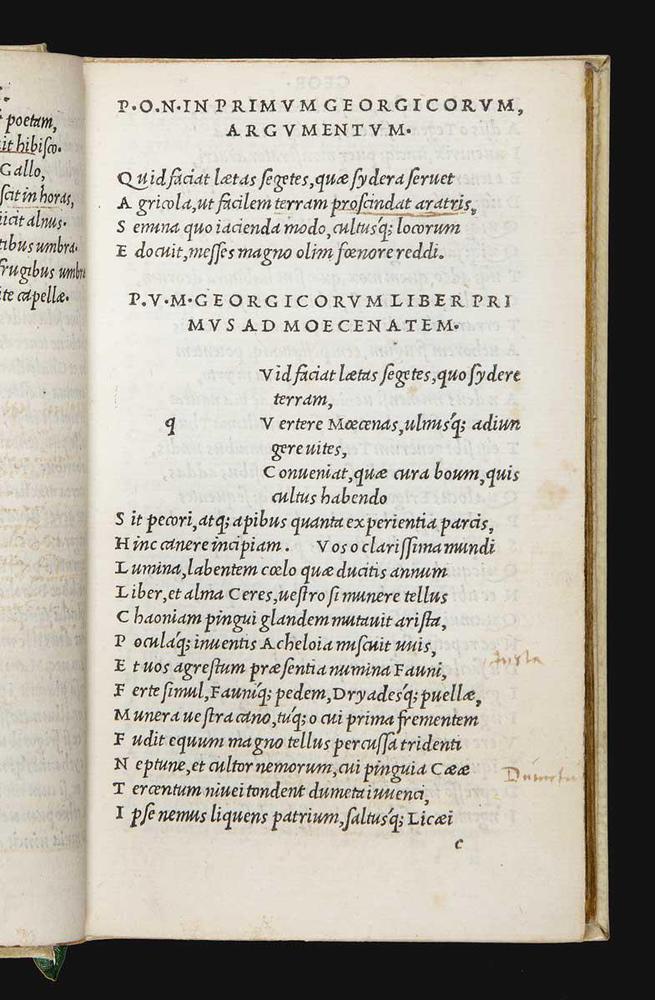 poetam,
it hibisco.
Gallo,
scit in horas,
iicit alnus.
tibus umbra.
frugibus umbræ
ite capellæ.
P.O.N.IN PRIMVM GEORGICORVM,
ARGVMENTVM.
Quid faciat lætas segetes, quæ sydera seruet
Agricola, ut facilem terram proscindat aratris,
Semina quo iacienda modo, cultusq́; locorum
Edocuit, messes magno olim fœnore reddi.
P.V.M.GEORGICORVM LIBER PRI
MVS AD MOECENATEM.
Vid faciat lætas segetes, quo sydere
terram,
q Vertere Mœcenas, ulmisq́; adiun
gere uites,
Conueniat, quæ cura boum, quis
cultus habendo
Sit pecori, atq; apibus quanta experientia parcis,
Hinc canere incipiam. Vos o clarissima mundi
Lumina, labentem cœlo quæ ducitis annum
Liber, et alma Ceres, uestro si munere tellus
Chaoniam pingui glandem mutauit arista,
Poculaq́; inuentis Acheloia miscuit uuis,
Et uos agrestum præsentia numina Fauni,
Ferte simul, Fauniq́; pedem, Dryadesq́; puellæ,
Munera uestra cano, tuq́; o cui prima frementem
Fudit equum magno tellus percussa tridenti
Neptune, et cultor nemorum, cui pinguia Cææ
Tercentum niuei tondent dumeta iuuenci,
Ipse nemus liquens patrium, saltusq́; Licæi
c